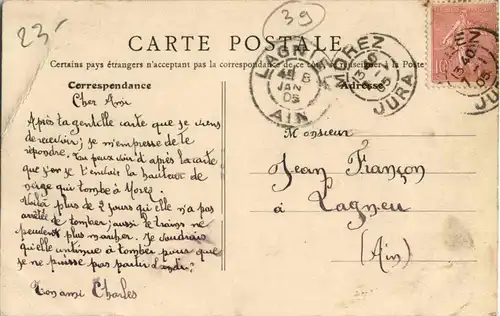 23-
39
CARTE POSTALE
Certains pays étrangers n'acceptent pas la correspondance de ce côté se renseigner à la Poste
Correspondance
Adresse
LAGNIEU
JAN
05
AIN
MOREZ
05
JURA
10
Cher Ami
Après ta gentille carte que je viens
de recevoir; je m'empresse de te
répondre. Tu peux voir d'après la carte
que j'en je t'envoie la hauteur de
neige qui tombe à Morez.
Voilà plus de 2 jours qu'elle n'a pas
arrêtée de tomber; aussi les trains ne
peuvent plus marcher. Je voudrais
qu'elle continue à tomber pour que
je ne puisse pas partir lundi.
Ton ami Charles
Monsieur
Jean Françon
à Lagneu
(Ain)